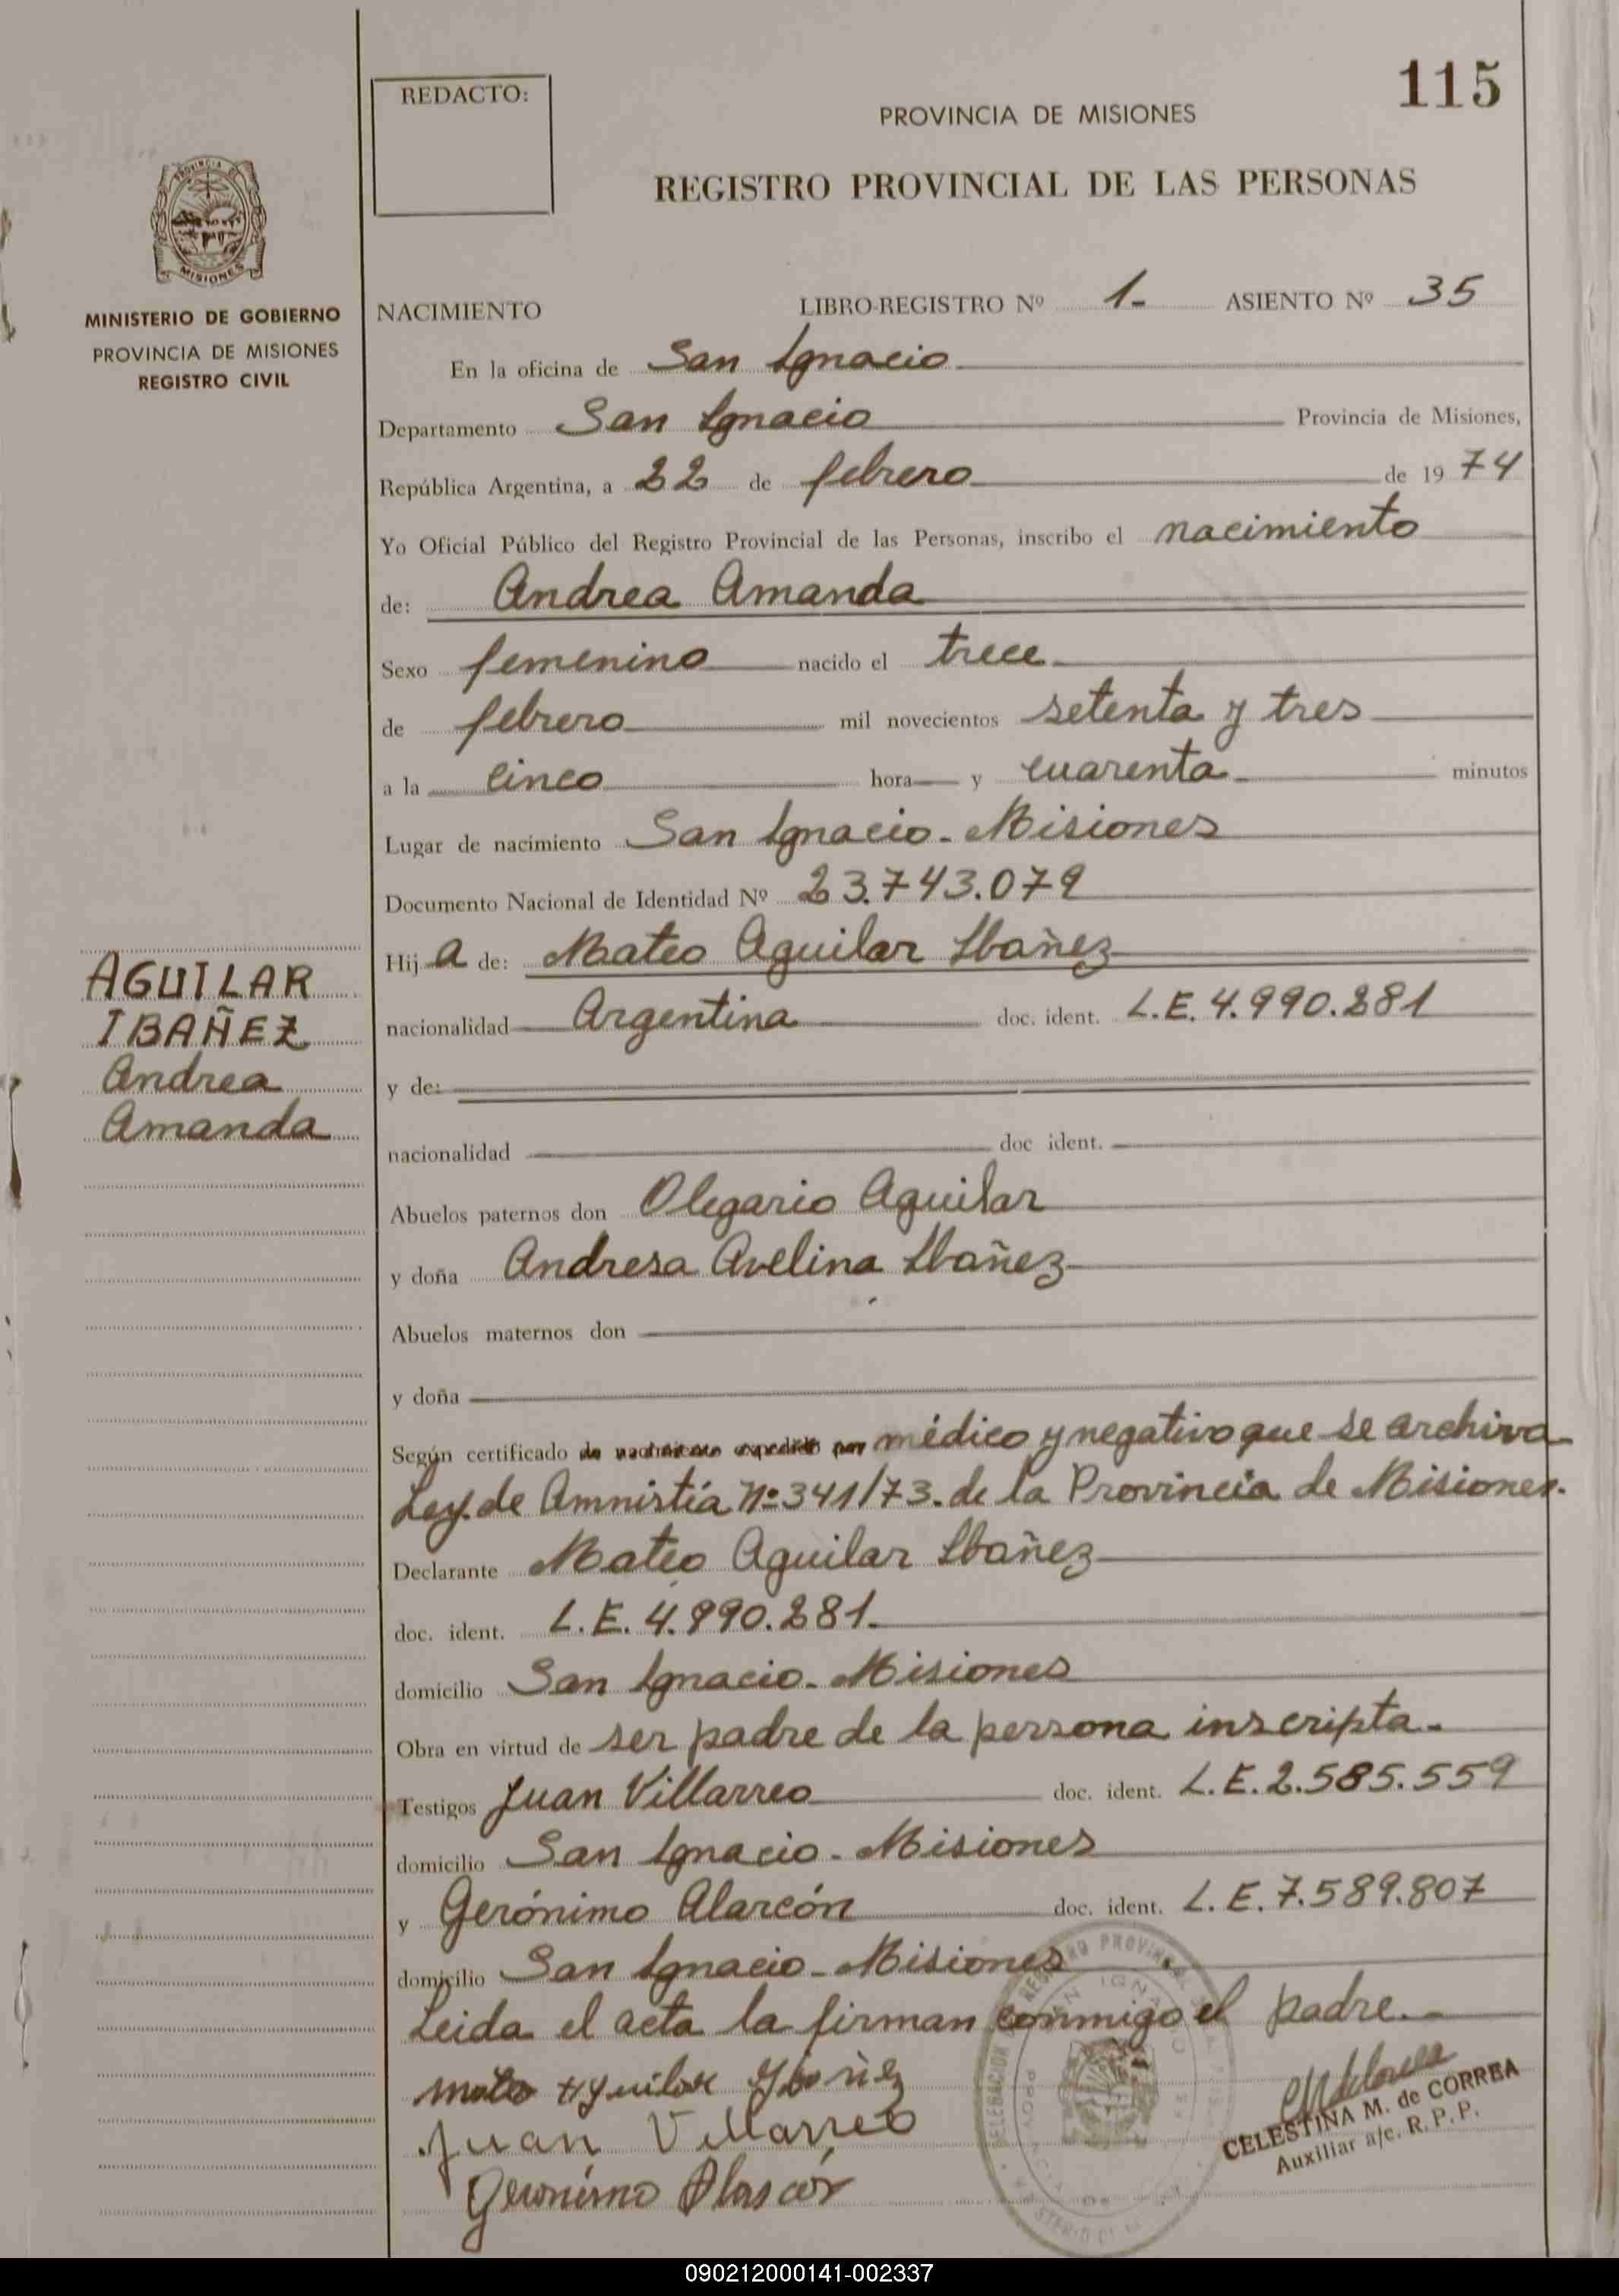 115
REDACTO:
PROVINCIA DE MISIONES
REGISTRO PROVINCIAL DE LAS PERSONAS
PROVINCIA DE
MISIONES
MINISTERIO DE GOBIERNO
PROVINCIA DE MISIONES
REGISTRO CIVIL
NACIMIENTO LIBRO-REGISTRO Nº 1- ASIENTO Nº 35
En la oficina de San Ignacio
Departamento San Ignacio Provincia de Misiones,
República Argentina, a 22 de febrero de 1974
Yo Oficial Público del Registro Provincial de las Personas, inscribo el nacimiento
de: Andrea Amanda
Sexo femenino nacido el trece
de febrero mil novecientos setenta y tres
a la cinco hora y cuarenta minutos
Lugar de nacimiento San Ignacio - Misiones
Documento Nacional de Identidad Nº 23.743.079
Hija de: Mateo Aguilar Ibañez
nacionalidad Argentina doc. ident. L.E. 4.990.281
y de:
nacionalidad doc ident.
AGUILAR
IBAÑEZ
Andrea
Amanda
Abuelos paternos don Olegario Aguilar
y doña Andresa Avelina Ibañez
Abuelos maternos don
y doña
Según certificado de nacimiento expedido por médico y negativo que se archiva
Ley de Amnistía Nº 341/73. de la Provincia de Misiones.
Declarante Mateo Aguilar Ibañez
doc. ident. L.E. 4.990.281.
domicilio San Ignacio - Misiones
Obra en virtud de ser padre de la persona inscripta.
Testigos Juan Villarreo doc. ident. L.E. 2.585.559
domicilio San Ignacio - Misiones
y Gerónimo Alarcón doc. ident. L.E. 7.589.807
domicilio San Ignacio - Misiones
Leida el acta la firman conmigo el padre.
Mateo Aguilar Ibañez
Juan Villarreo
Geronimo Alarcon
CELESTINA M. de CORREA
Auxiliar a/c. R.P.P.
090212000141-002337